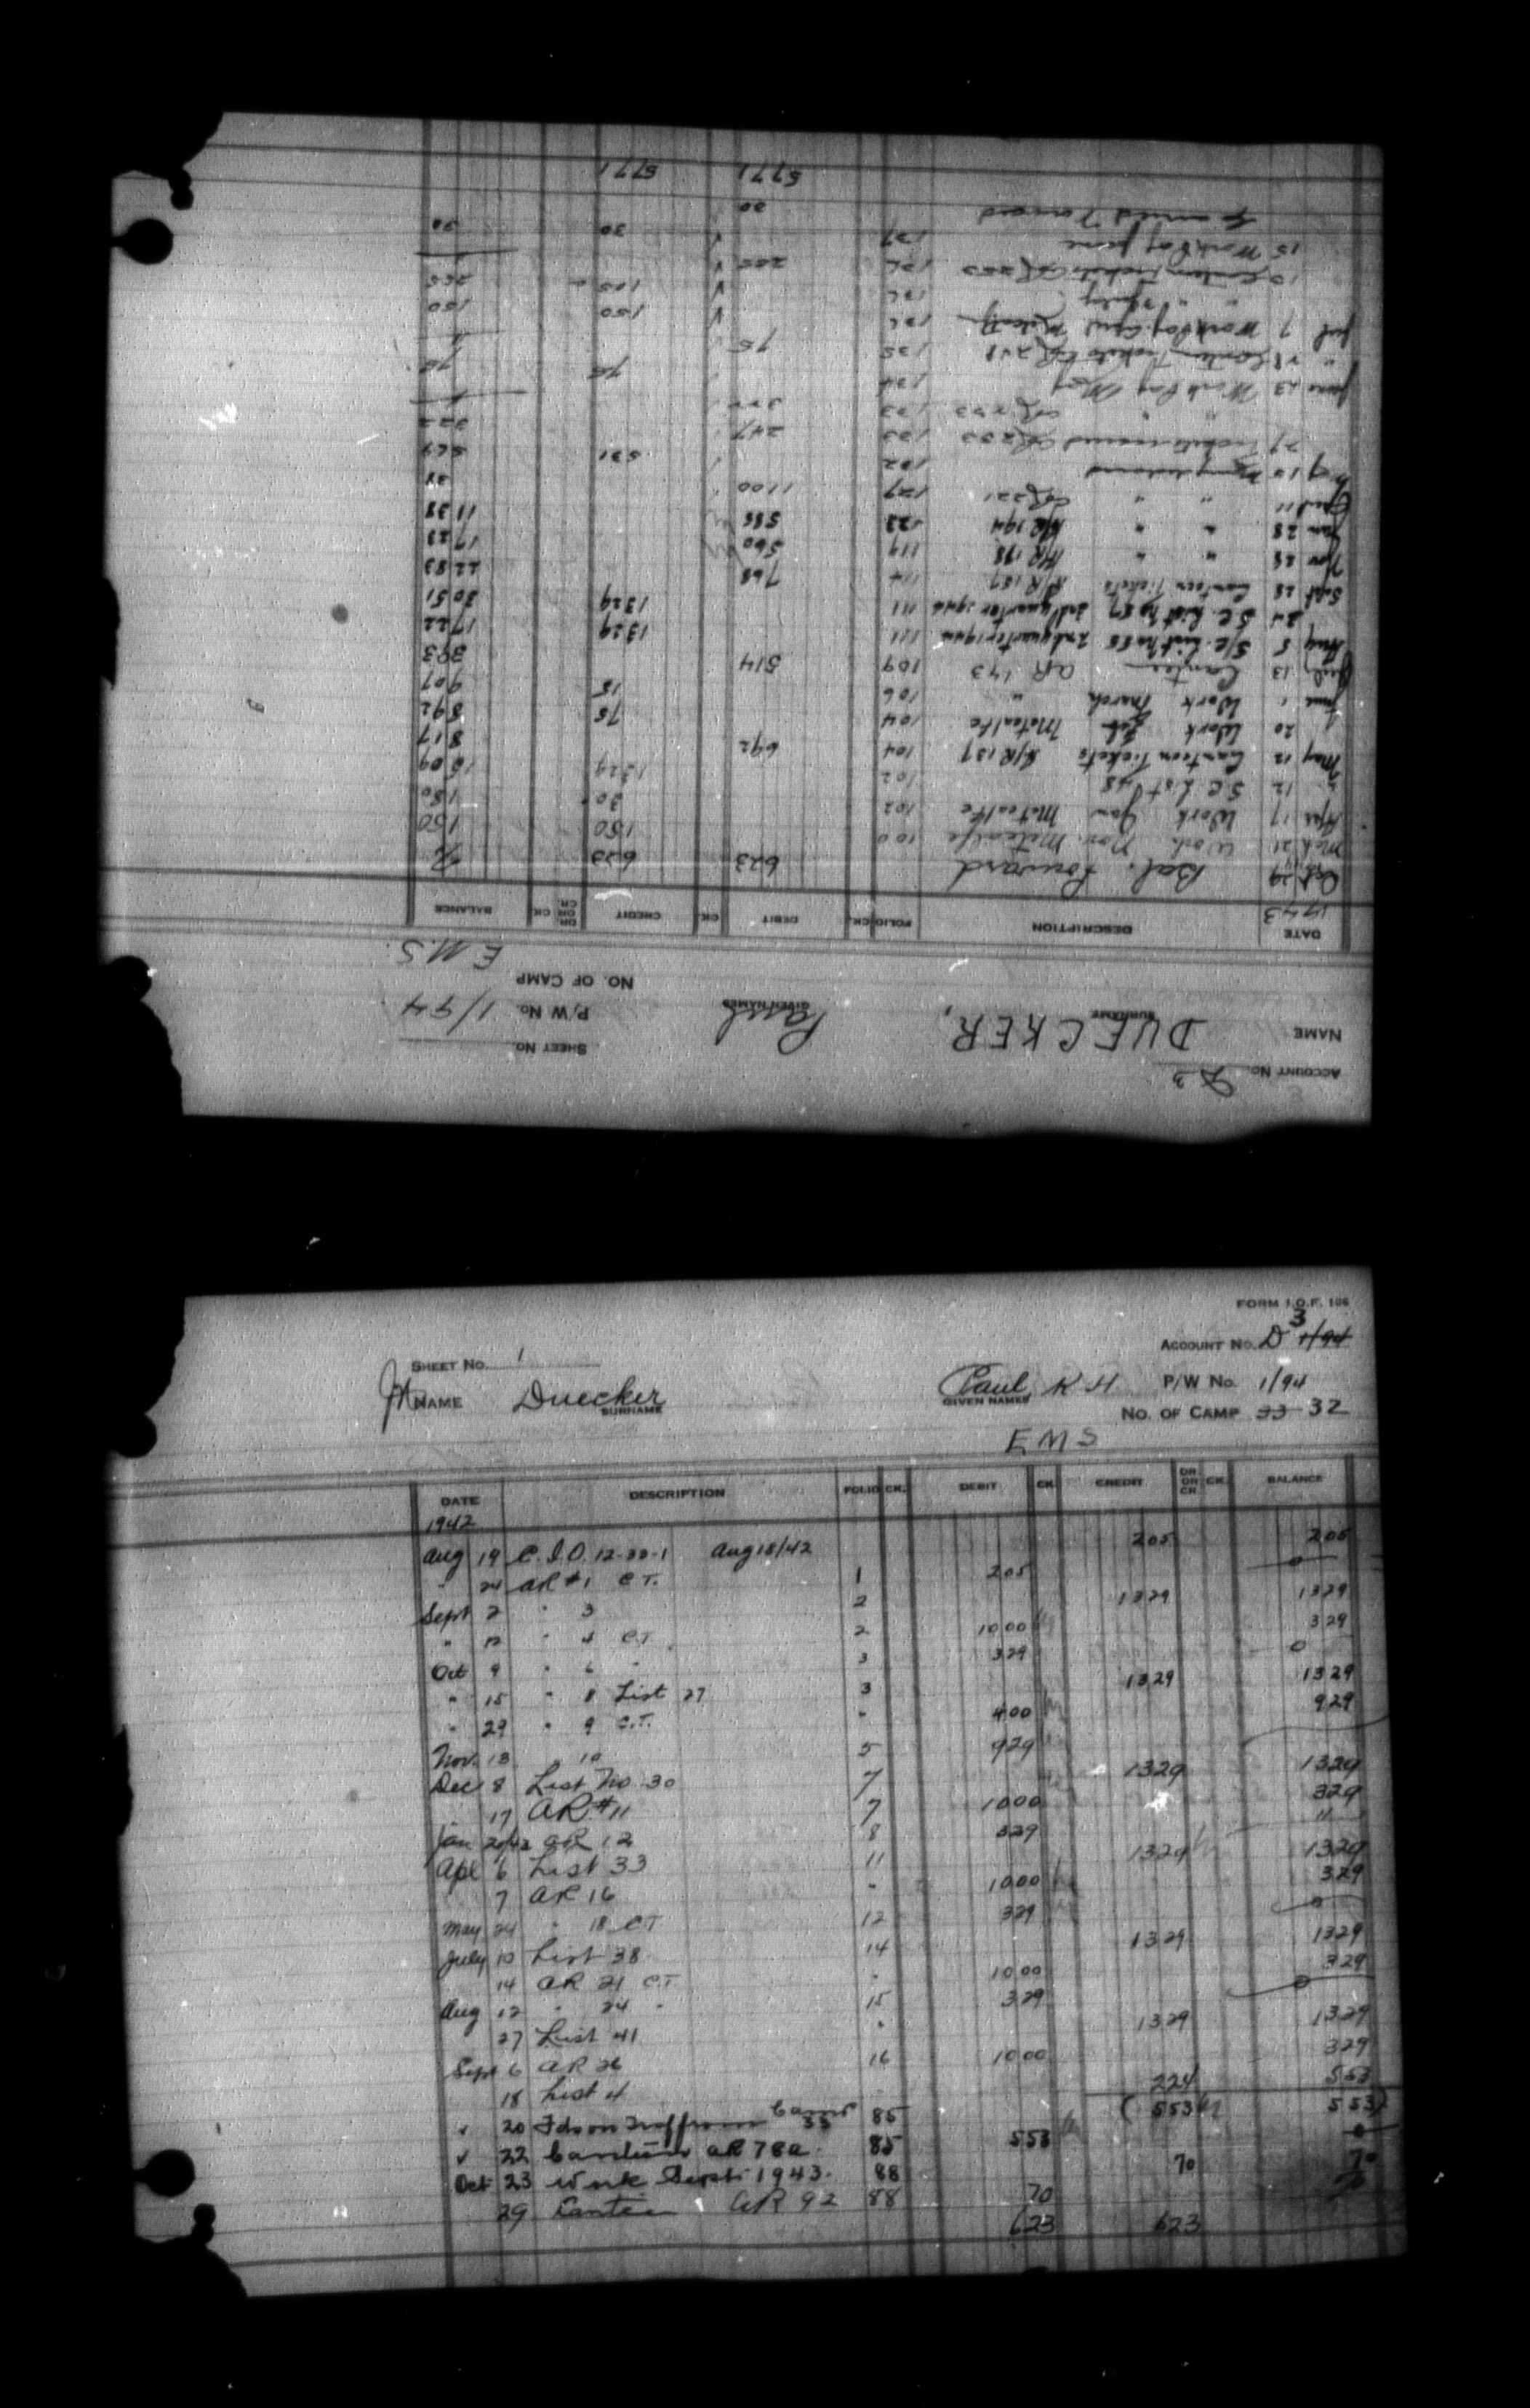 ACCOUNT No. D3
SHEET No.
NAME DUECKER, Paul P/W No. 1/94
SURNAME GIVEN NAMES
NO. OF CAMP
E.M.S.
DATE DESCRIPTION FOLIO CK. DEBIT CK. CREDIT DR OR CR CK BALANCE
1943
Oct 29 Bal. Forward 623 623
Mch 21 Work Nov. Metcalfe 100 150 150
Apr 17 Work Jan Metcalfe 102 30 180
" 12 S.C. List 48 102 1329 1509
May 12 Canteen Tickets A/R 137 104 692 817
20 Work Feb Metcalfe 104 75 892
June 1 Work March " 106 15 907
July 13 Canteen AR 143 109 514 393
Aug 5 S/C. List No 55 2nd quarter 1944 111 1329 1722
24 S.C. List No 57 3rd quarter 1944 111 1329 3051
Sept 28 Canteen Tickets A/R 157 114 768 2283
Nov 28 " " A/R 178 119 560 1723
Jan 28 " " A/R 194 123 585 1138
" " 221 127 1100 38
May 10 132 531 569
27 Tickets 133 247 322
" " 133
June 23 Work Pay May 134 75 75
" Canteen Tickets 135 75
Jul 7 Work Pay 136 150 150
" " 136 105 255
10 Canteen Tickets 136 255
15 Work Pay June 137 30 30
Forward 30
5771 5771
FORM I.O.F. 106
3
ACCOUNT No. D 1/94
SHEET No. 1
NAME Duecker Paul K H P/W No. 1/94
SURNAME GIVEN NAMES
No. OF CAMP 33 32
E M S
DATE DESCRIPTION FOLIO CK. DEBIT CK. CREDIT DR OR CR CK. BALANCE
1942
Aug 19 C.I.O. 12-33-1 Aug 18/42 205 205
" 24 AR #1 C.T. 1 205 0
Sept 2 " 3 2 1329 1329
" 12 " 4 C.T. 2 1000 329
Oct 9 " 6 " 3 329 0
" 15 " 8 List 27 3 1329 1329
" 29 " 9 C.T. " 400 929
Nov. 13 10 5 929
Dec 8 List No 30 7 1329 1329
17 AR #11 7 1000 329
Jan AR 12 8 329 "
Apl 6 List 33 11 1329 1329
7 AR 16 " 1000 329
May 24 " 18 C.T 12 329 0
July 10 List 38 14 1329 1329
14 AR 21 C.T. " 1000 329
Aug 12 " 24 " 15 329 0
27 List 41 " 1329 1329
Sept 6 AR 26 16 1000 329
18 List 4 224 553
20 Camp 33 85 (553 553)
22 Canteen AR 78a. 85 553 0
Oct 23 Work Sept. 1943. 88 70 70
29 Canteen AR 92 88 70
623 623